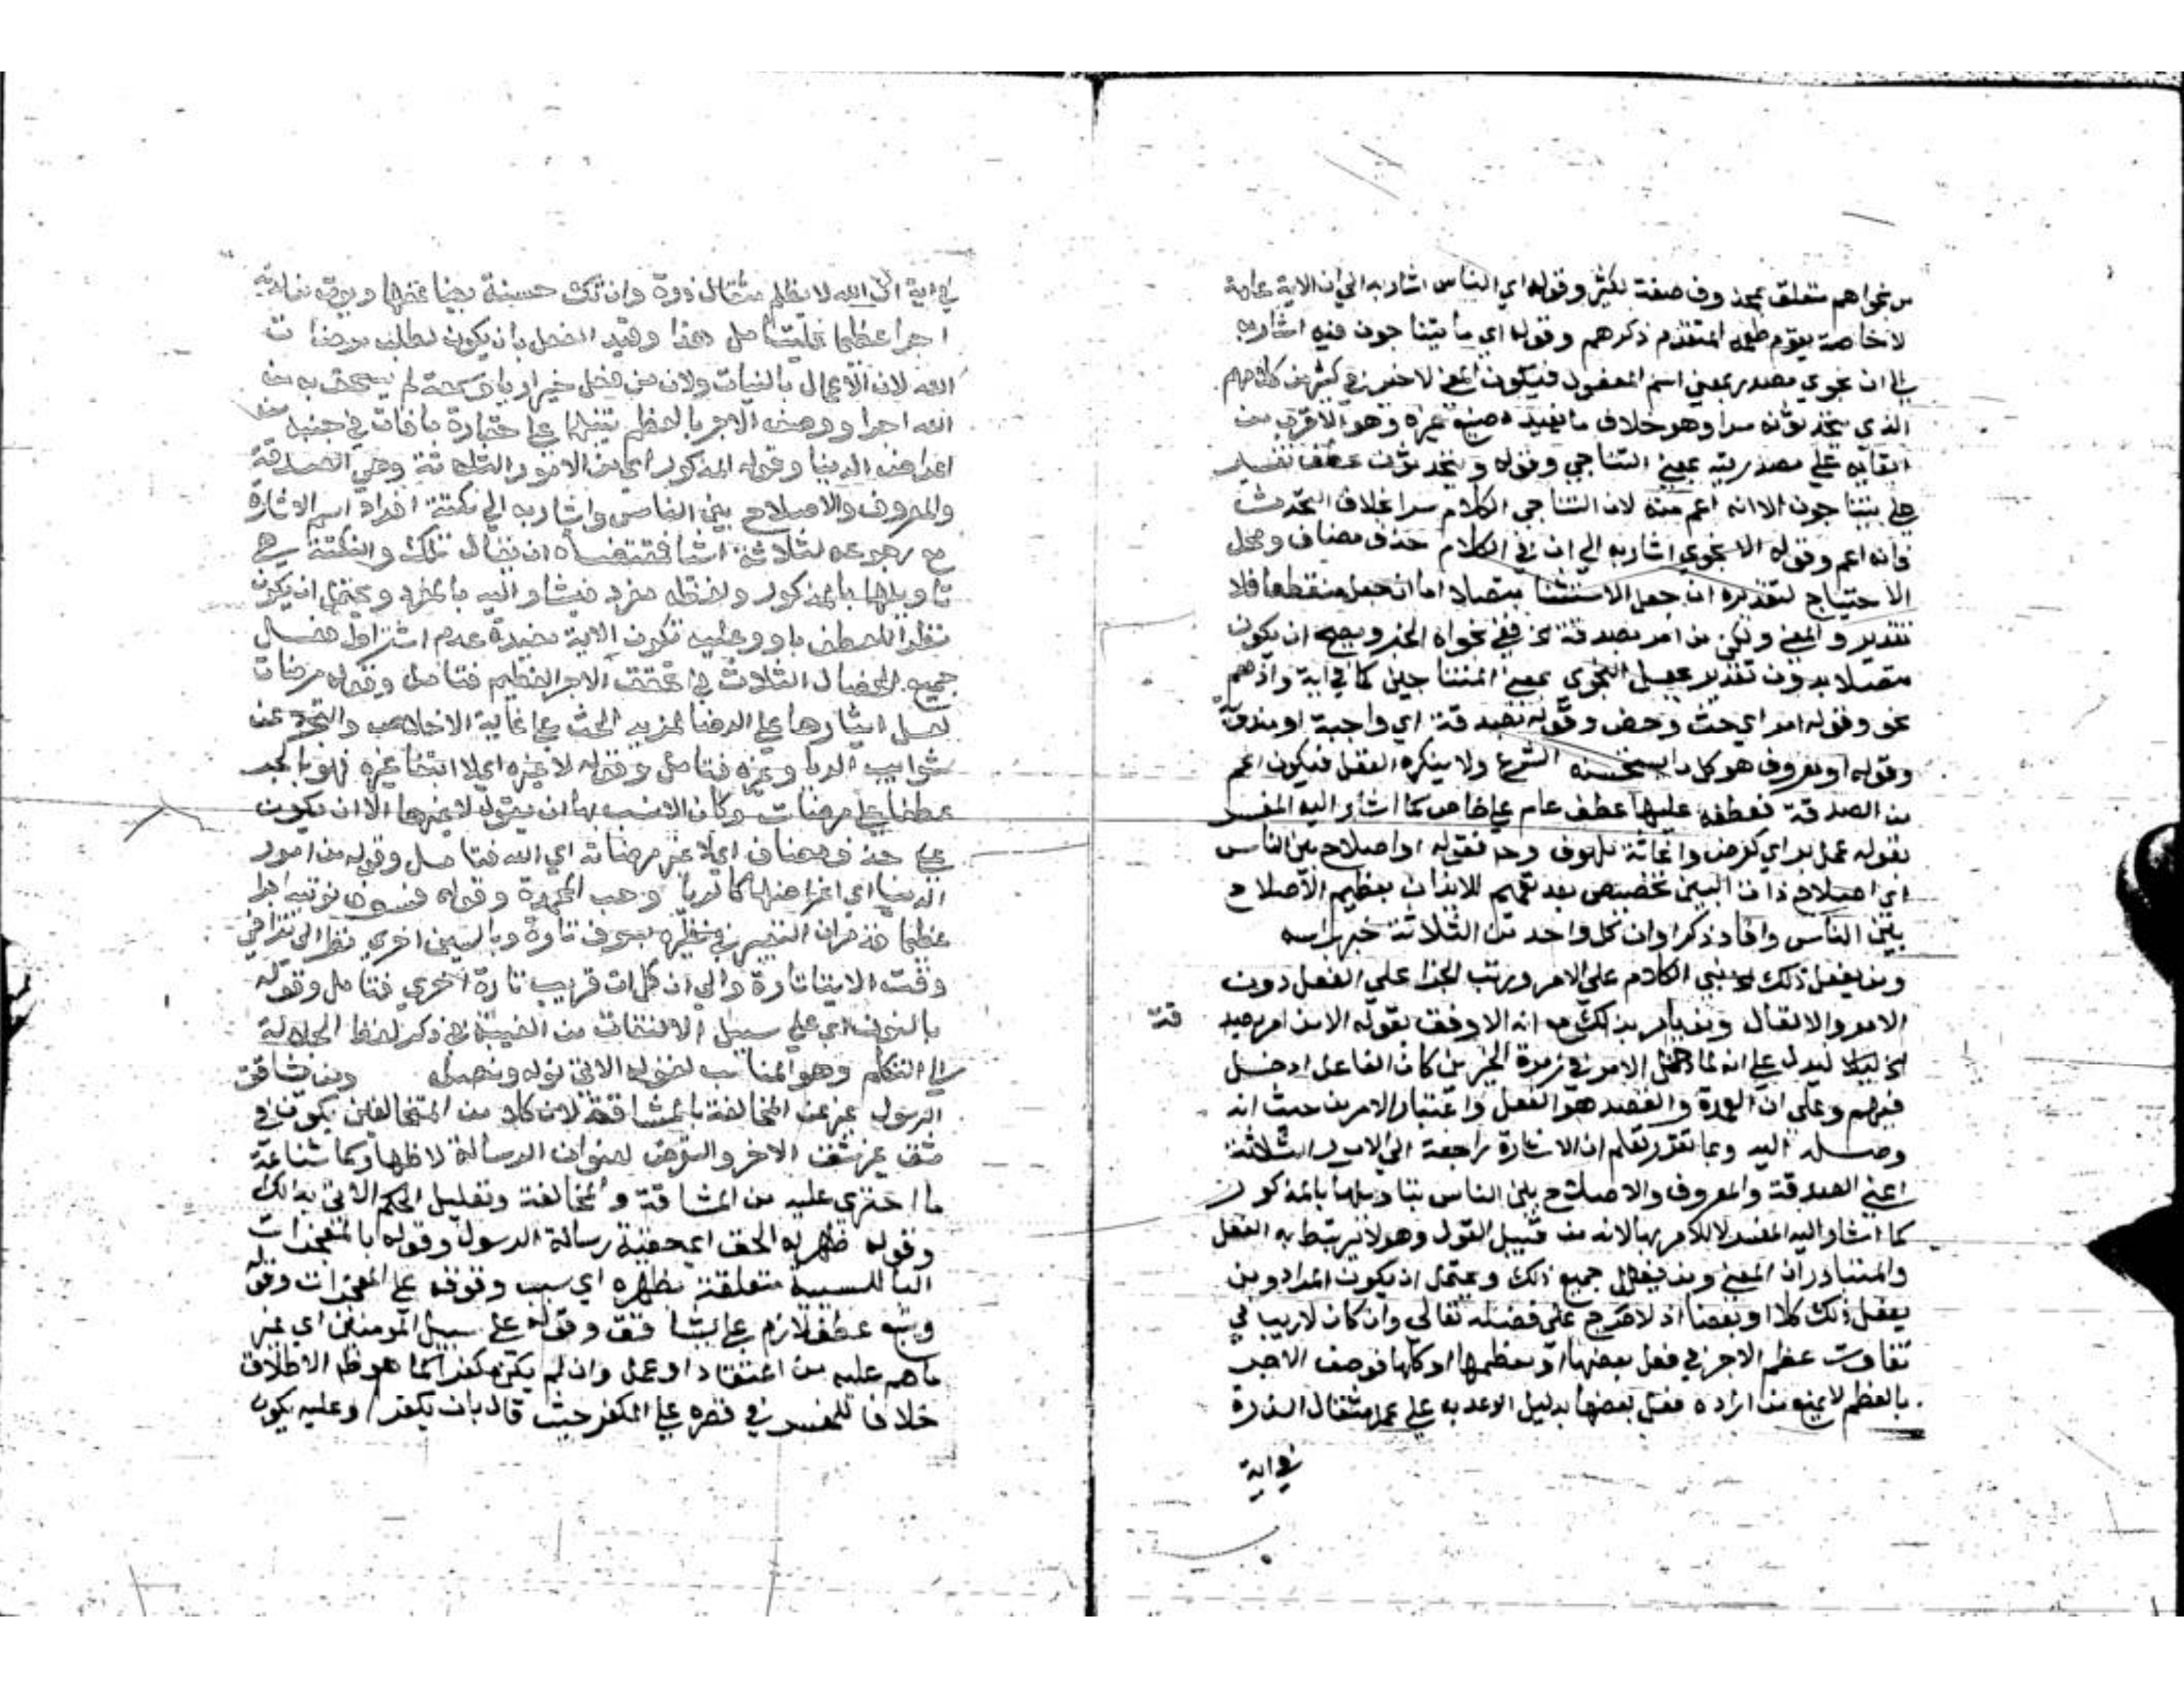 من نجواهم متعلق بمحذوف صفة لكثير وقوله اي الناس اشار به الي ان الاية عامة
لا خاصة بقوم طعمه المتقدم ذكرهم وقوله اي ما يتناجون فيه اشار به
الي ان نجوي مصدر بمعني اسم المفعول فيكون المعني لا خير في كثير من كلامهم
الذي يتحدثونه سرا وهو خلاف ما يفيده صنيع غيره وهو الاقرب من
ابقايه علي مصدريته بمعني التناجي وقوله ويتحدثون عطف تفسير
علي يتناجون الا انه اعم منه لان التناجي الكلام سرا بخلاف التحدث
فانه اعم وقوله الا نجوي اشار به الي ان في الكلام حذف مضاف ومحل
الاحتياج لتقديره ان جعل الاستثنا متصلا اما ان جعل منقطعا فلا
تقدير والمعني ولكن من امر بصدقة الخ ففي نجواه الخير ويصح ان يكون
متصلا بدون تقدير بجعل النجوي بمعني المتناجين كما في اية واذ هم
نجوي وقوله امر اي حث وحض وقوله بصدقة اي واجبة او مندوبة
وقوله او معروف هو كل ما يستحسنه الشرع ولا ينكره العقل فيكون اعم
من الصدقة فعطفه عليها عطف عام علي خاص كما اشار اليه المفسر
بقوله عمل بر اي كقرض واغاثة ملهوف وح فقوله او اصلاح بين الناس
اي اصلاح ذات البين تخصيص بعد تعميم للايذان بعظيم الاصلاح
بين الناس وافاد ذكر او ان كل واحد من الثلاثة خير براسه
ومن يفعل ذلك بني الكلام علي الامر ورتب الجزا علي الفعل دون
الامر والا لقال ومن يامر بذلك مع انه الاوفق بقوله الا من امر بصد
قة
الخ ليدل علي انه لما دخل الامر في زمرة الخيرين كان الفاعل ادخل
فيهم وعلي ان العمدة والقصد هو الفعل واعتبار الامر من حيث انه
وصلة اليه وبما تقرر تعلم ان الاشارة راجعة الي الامور الثلاثة
اعني الصدقة والمعروف والاصلاح بين الناس بتاويلها بالمذكور
كما اشار اليه المفسر لا للامر بها لانه من قبيل القول وهو لا يرتبط به الفعل
والمتبادر ان المعني ومن يفعل جميع ذلك ويحتمل ان يكون المراد ومن
يفعل ذلك كلا او بعضا اذ لا حرج علي فضله تعالي وان كان لا ريب في
تفاوت عظم الاجر في فعل بعضها او معظمها او كلها فوصف الاجر
بالعظم لا يمنع من ارادة فعل بعضها بدليل الوعد به علي عمل مثقال الذرة
في اية
في اية ان الله لا يظلم مثقال ذرة وان تك حسنة يضاعفها ويوت من لدنه
اجرا عظيما فليتامل هذا وقيد الفعل بان يكون لطلب مرضات
الله لان الاعمال بالنيات ولان من فعل خيرا رياء وسمعة لم يستحق به من
الله اجرا ووصف الاجر بالعظم تنبيها علي حقارة ما فات في جنبه من
اعراض الدنيا وقوله المذكور اي من الامور الثلاثة وهي الصدقة
والمعروف والاصلاح بين الناس واشار به الي نكتة افراد اسم الاشارة
مع رجوعه لثلاثة اشيا فمقتضاه ان يقال تلك والنكتة هي
تاويلها بالمذكور ولفظه مفرد فيشار اليه بالمفرد ويحتمل ان يكون
نظرا للعطف باو وعليه تكون الاية مفيدة عدم اشتراط فعل
جميع الخصال الثلاث في تحقق الاجر العظيم فتامل وقوله مرضات
لعل ايثارها علي الرضا لمزيد الحث علي غاية الاخلاص والتحرز عن
شوايب الريا وغيره فتامل وقوله لا غيره اي لا ابتغا غيره فهو بالجر
عطفا علي مرضات وكان الانسب بها ان يقول لا غيرها الا ان يكون
علي حذف مضاف اي لا غير مرضاته اي الله فتامل وقوله من امور
الدنيا اي اغراضها كالريا وحب المحمدة وقوله فسوف نوتيه اجرا
عظيما قد مر ان التعبير في نظيره بسوف تارة وبالسين اخري نظرا الي تراخي
وقت الايتا تارة والي ان كل ات قريب تارة اخري فتامل وقوله
بالنون اي علي سبيل الالتفات من الغيبة في ذكر لفظ الجلالة
الي التكلم وهو المناسب لقوله الاتي نوله ونصله ومن يشاقق
الرسول عبر عن المخالفة بالمشاققة لان كلا من المتخالفين يكون في
شق غير شق الاخر والتعرض لعنوان الرسالة لاظهار كمال شناعة
ما اجترى عليه من المشاقة والمخالفة وتعليل الحكم الاتي بذلك
وقوله ظهر له الحق اي حقية رسالة الرسول وقوله بالمعجزات
البا للسببية متعلقة بظهر اي بسبب وقوفه علي المعجزات وقوله
ويتبع عطف لازم علي يشاقق وقوله علي سبيل المومنين اي غير
ما هم عليه من اعتقاد او عمل وان لم يكن مكفرا كما هو ظ الاطلاق
خلافا للمفسر في قصره علي المكفر حيث قال بان يكفر وعليه يكون